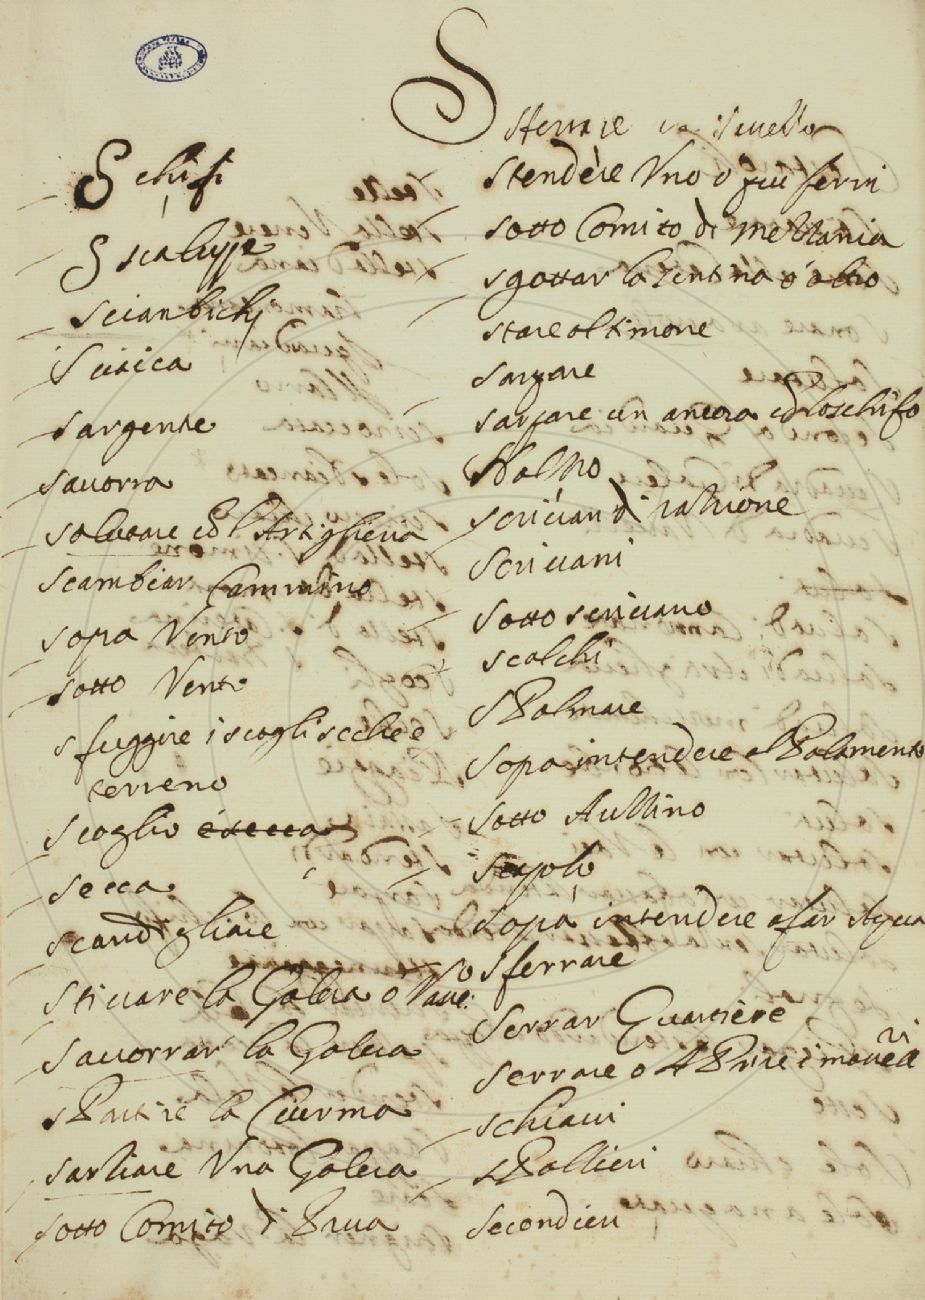 S
Schifi
Scaluppe
Scianbichi
Sargente
Sauorra
Salutare cõ l'Artiglieria
Scambiar Cammino
Sopra Vento
Sotto Vento
sfuggire i scogli secche e
terreno
Scoglio
Secca
Scandigliare
Stiuare la Galera o Naue
Sauorrar la Galera
Spartire la Ciurma
Sartiare Vna Galera
Sotto Comito di Prua
Sferrare un Vascello
Stendere Vno o più ferri
Sotto Comito di Mezzania
Sgottar la Sentina o altro
Stare al timone
Sarpare
Sarpare un ancora cõ lo schifo
Scriuan di razione
Scriuani
Sotto scriuano
Scalchi
Spalmare
Sopra intendere al Palamento
Sotto Auzzino
Sopra intendere a far Acqua
Sferrare
Serrar Quartiere
Serrare o Aprire i
Schiaui
Spallieri
Secondieri